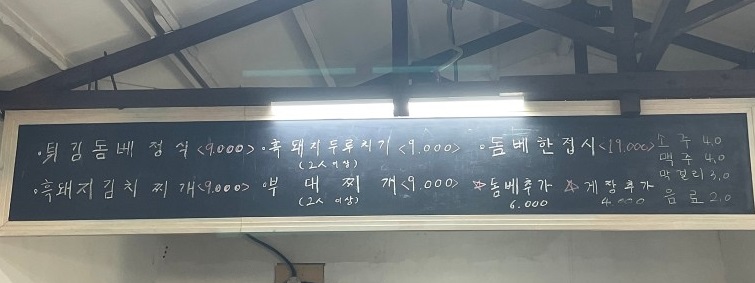 ·튀김돔베정식<9.000> ·흑돼지두루치기<9.000> ·돔베한접시<19.000> 소주 4.0
(2人이상) 맥주 4.0
·흑돼지김치찌개<9.000> ·부대찌개<9.000> ☆돔베추가 ☆게장추가 막걸리 3.0
(2人이상) 6.000 4.000 음료 2.0